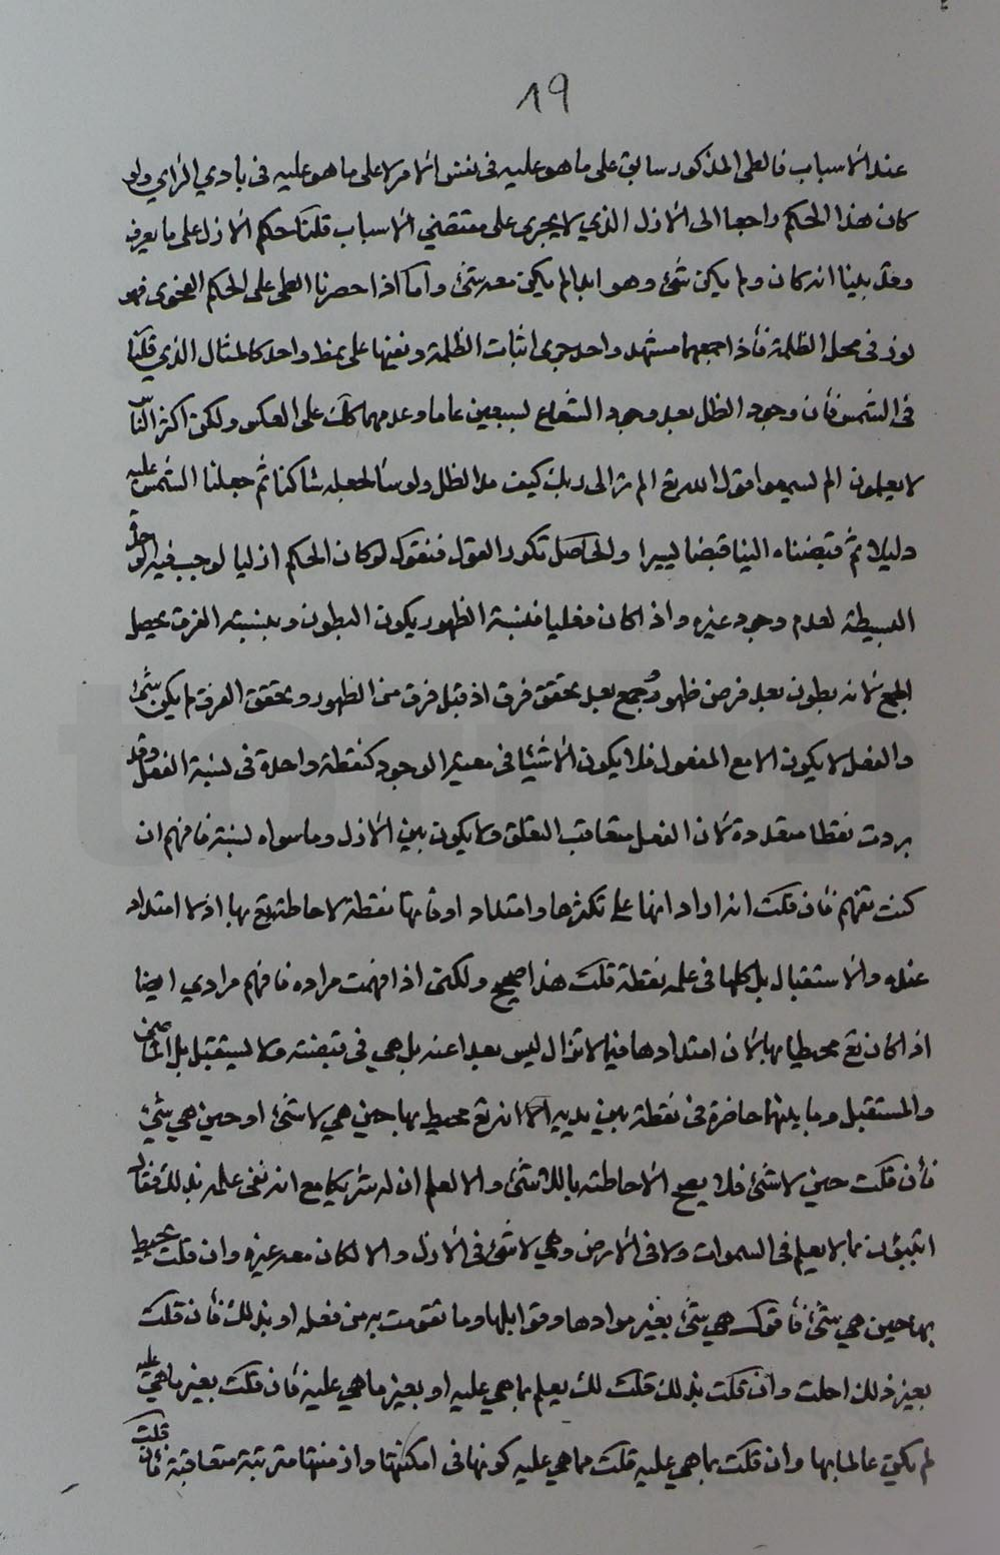 ١٩
عند الاسباب فالطى المذكور سابق على ما هو عليه فى نفس الامر لا على ما هو عليه فى بادي الرأي ولو
كان هذا الحكم راجعا الى الازل الذي لا يجرى على مقتضي الاسباب قلنا حكم الازل على ما يعرف
وقد بينا انه كان ولم يكن شئ وهو ابدا لم يكن معه شئ واما اذا حصرنا الطى على الحكم النحوى فهو
نور فى محل الظلمة فأذا جمعهما مشهد واحد جرى اثبات الظلمة ونفيها على نمط واحد كالمثال الذي قلنا
فى الشمس فأن وجود الظل بعد وجود الشعاع لسبعين عاما وعدمهما كك على العكس ولكن اكثر الناس
لا يعلمون الم يسمعوا قول الله تع الم تر الى ربك كيف مد الظل ولو شاء لجعله ساكنا ثم جعلنا الشمس عليه
دليلا ثم قبضناه الينا قبضا يسيرا والحاصل تكرر القول فنقول لو كان الحكم ازليا لوجب فيه الوحدة
البسيطة لعدم وجود غيره واذا كان فعليا فنسبة الظهور يكون البطون وبنسبة الفرق يحصل
الجمع لانه بطون بعد فرض ظهور وجمع بعد تحقق فرق اذ قبل فرق من الظهور وتحقق الفرق لم يكن شئ
والفعل لا يكون الا مع المفعول فلا يكون الاشيا فى معتبر الوجود كنقطة واحدة فى نسبة الفعل وقد
بردت نقطا متعددة لان الفعل متعاقب التعلق ولا يكون بين الازل وما سواه نسبة فافهم ان
كنت تفهم فأن قلت انه اراد انها على تكثرها وامتداد اوقاتها نقطة لاحاطته تع بها اذ لا امتداد
عنده ولا استقبال بل كلها فى علمه نقطة قلت هذا صحيح ولكنى اذا فهمت مراده فافهم مرادي ايضا
اذا كان تع محيطا بها لان امتدادها فيما لا تزال ليس بعدا عنه بل هي فى قبضته ولا يستقبل بل الماضى
والمستقبل وما بينهما حاضرة فى نقطة بين يديه الا انه تع محيط بها حين هي لا شئ او حين هي شئ
فأن قلت حين لا شئ فلا يصح الاحاطة باللاشئ ولا العلم ان له شريكا مع انه نفى علمه بذلك فقال
اتنبئون بما لا يعلم فى السموات ولا فى الارض وهي لا شئ فى الازل والا لكان معه غيره وان قلت محيط
بها حين هي شئ فأقول هي شئ بغير موادها وقوابلها وما تقومت به من فعله او بذلك فأن قلت
بغير ذلك احلت وان قلت بذلك قلت لك يعلم بما هي عليه او بغير ما هي عليه فأن قلت بغير ما هي عليه
لم يكن عالما بها وان قلت بما هي عليه قلت مما هي عليه كونها فى امكنتها وازمنتها مترتبة متعاقبة فأن قلت